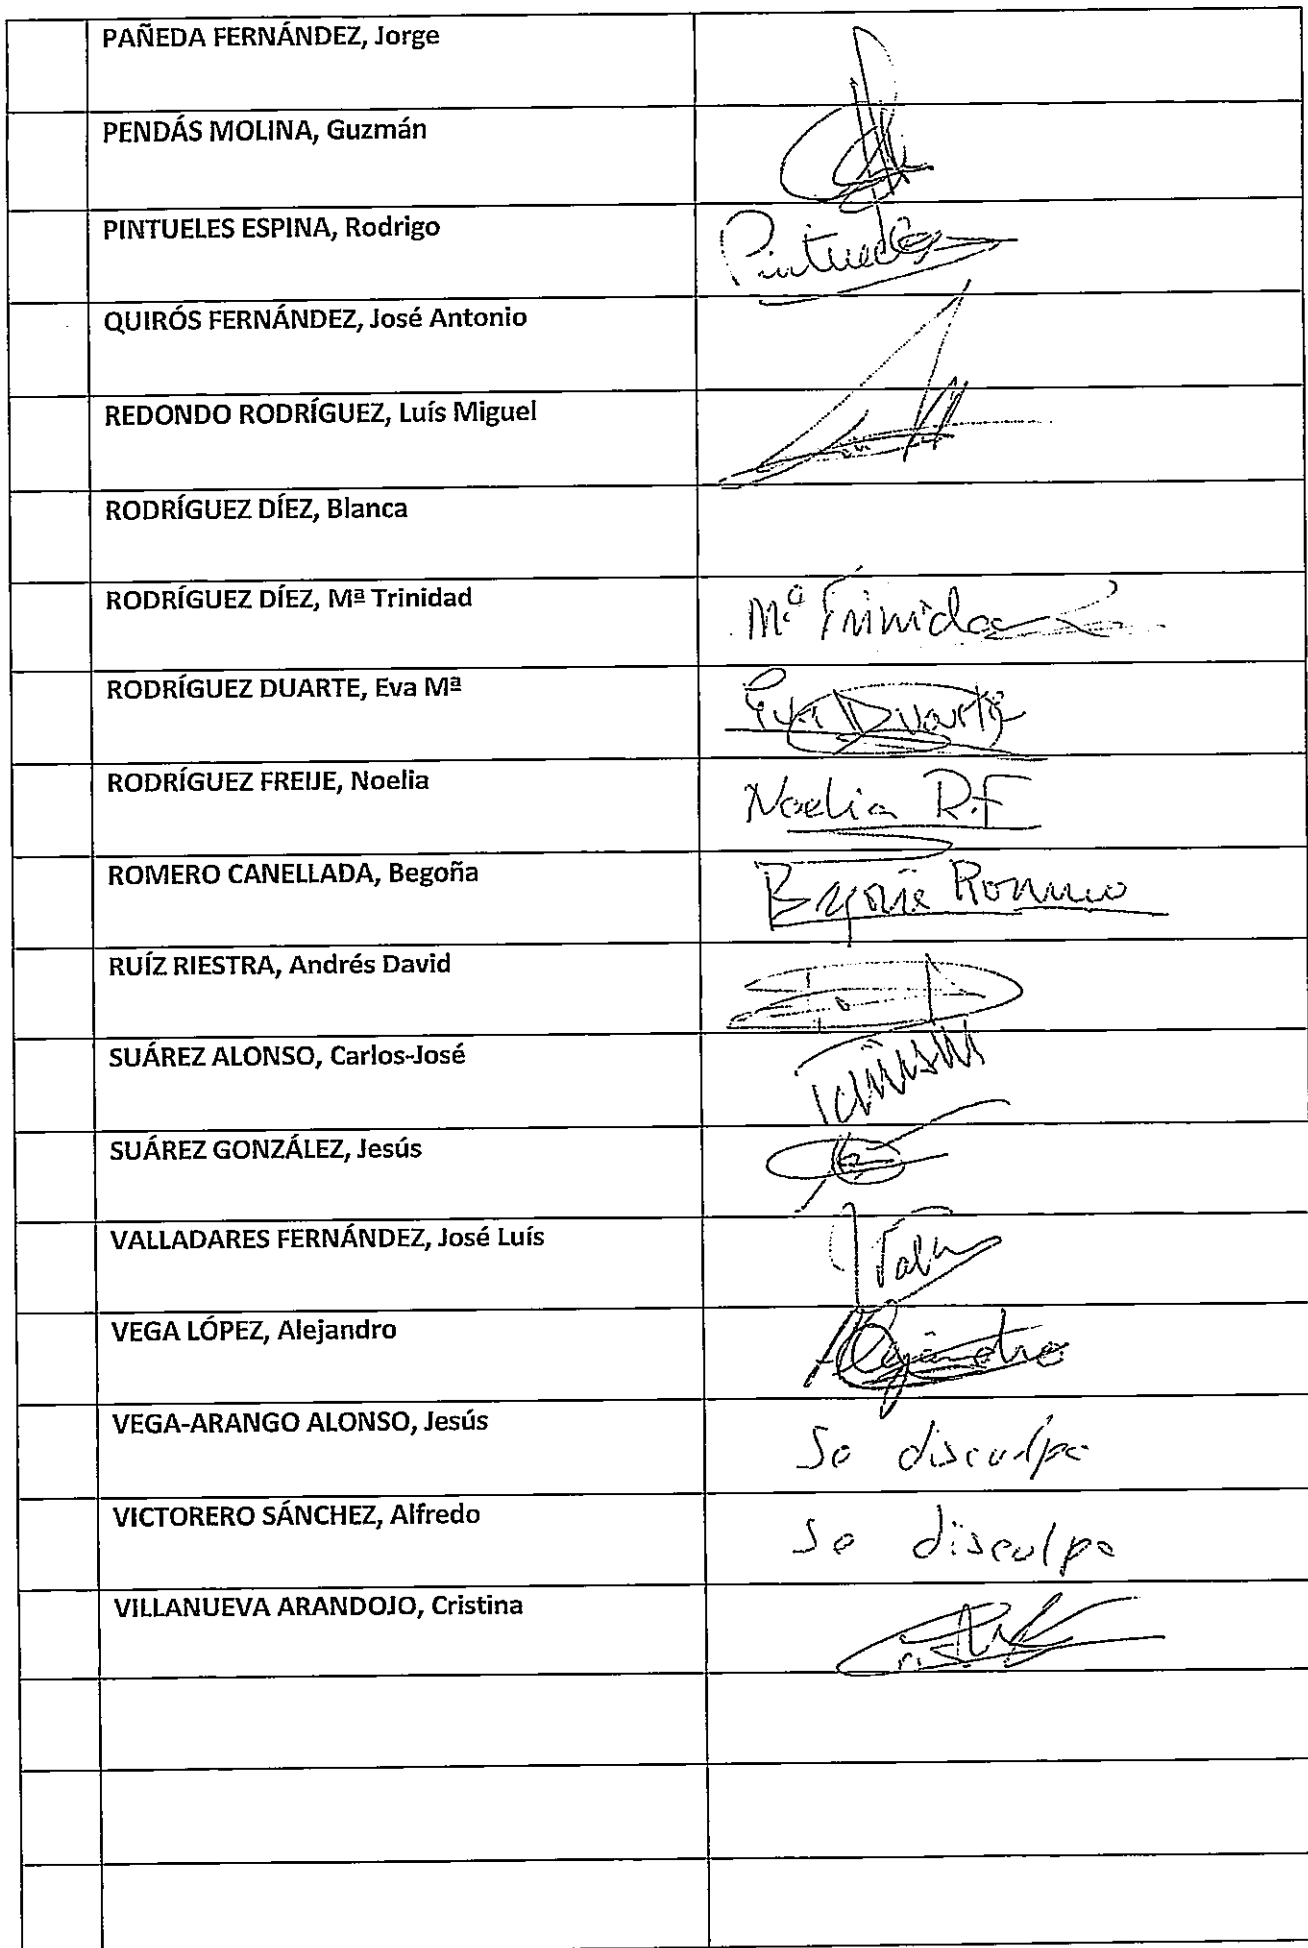 PAÑEDA FERNÁNDEZ, Jorge
PENDÁS MOLINA, Guzmán
PINTUELES ESPINA, Rodrigo
Pintueles
QUIRÓS FERNÁNDEZ, José Antonio
REDONDO RODRÍGUEZ, Luís Miguel
RODRÍGUEZ DÍEZ, Blanca
RODRÍGUEZ DÍEZ, Mª Trinidad
Mª Trinidad
RODRÍGUEZ DUARTE, Eva Mª
Eva Duarte
RODRÍGUEZ FREIJE, Noelia
Noelia R.F
ROMERO CANELLADA, Begoña
Begoña Romero
RUÍZ RIESTRA, Andrés David
SUÁREZ ALONSO, Carlos-José
SUÁREZ GONZÁLEZ, Jesús
VALLADARES FERNÁNDEZ, José Luís
VEGA LÓPEZ, Alejandro
Alejandro
VEGA-ARANGO ALONSO, Jesús
Se disculpa
VICTORERO SÁNCHEZ, Alfredo
Se disculpa
VILLANUEVA ARANDOJO, Cristina